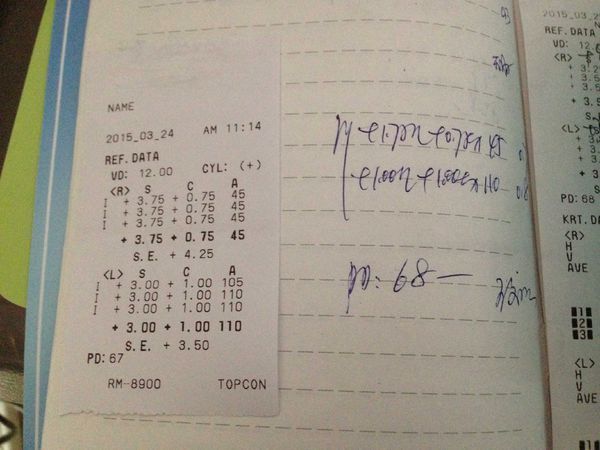 NAME
2015_03_24 AM 11:14
REF.DATA
VD: 12.00 CYL: (+)
<R> S C A
I + 3.75 + 0.75 45
I + 3.75 + 0.75 45
I + 3.75 + 0.75 45
+ 3.75 + 0.75 45
S.E. + 4.25
<L> S C A
I + 3.00 + 1.00 105
I + 3.00 + 1.00 110
I + 3.00 + 1.00 110
+ 3.00 + 1.00 110
S.E. + 3.50
PD: 67
RM-8900 TOPCON
PD: 68
2015_03_2
NA
REF.DATA
VD: 12.0
<R>
+ 3.
<L>
PD: 68
KRT.DA
<R>
H
V
AVE
1
2
3
<L>
H
V
AVE